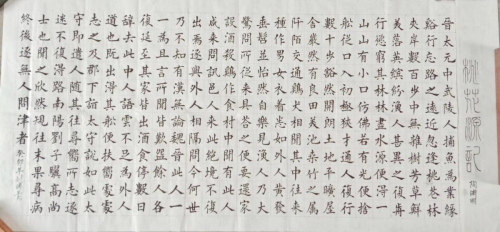 桃花源記
陶淵明
晉太元中武陵人捕魚為業緣
谿行忘路之遠近忽逢桃花林
夾岸數百步中無雜樹芳草鮮
美落英繽紛漁人甚異之復前
行欲窮其林林盡水源便得一
山山有小口彷彿若有光便捨
舩從口入初極狹才通人復行
數十步豁然開朗土地平曠屋
舍嚴然有良田美池桑竹之屬
阡陌交通鷄犬相聞其中往來
種作男女衣着悉如外人黃髮
垂髫並怡然自樂見漁人乃大
驚問所從來具答之便要還家
設酒殺鷄作食村中聞有此人
咸來問訊邑人來此絕境不復
出焉遂與外人相隔問今何世
乃不知有漢無論魏晉此人一
一為且言所聞皆歎惋餘人各
復延至其家皆出酒食停數日
辭去此中人語雲不足為外人
道也既出得其舩便扶嚮處處
志之及郡下詣太守說如此太
守即遣人隨其往尋嚮所志遂
迷不復得路南陽劉子驥高尚
士也聞之欣然規往未果尋病
終後遂無人問津者
癸卯